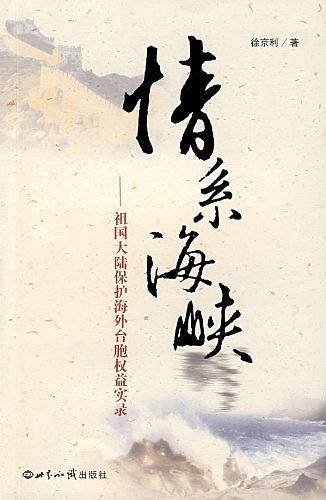 徐京利/著
情系海峡
——祖国大陆保护海外台胞权益实录
世界知识出版社